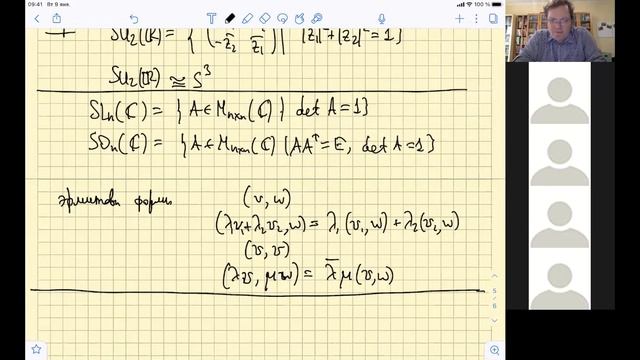 09:41 Вт 9 янв.
100 %
SU₂(ℝ) = { ( z̄₁ -z̄₂ z̄₁ ) | |z₁|²+|z₂|²=1 }
SU₂(ℝ) ≅ S³
SLₙ(ℂ) = { A ∈ Mₙₓₙ(ℂ) | det A = 1 }
SOₙ(ℂ) = { A ∈ Mₙₓₙ(ℂ) | AAᵀ = E, det A = 1 }
эрмитовы формы (v, w)
(λv₁+λ₂v₂, w) = λ₁(v₁, w) + λ₂(v₂, w)
(v, v)
(λv, μw) = λ̄ μ (v, w)
5
6